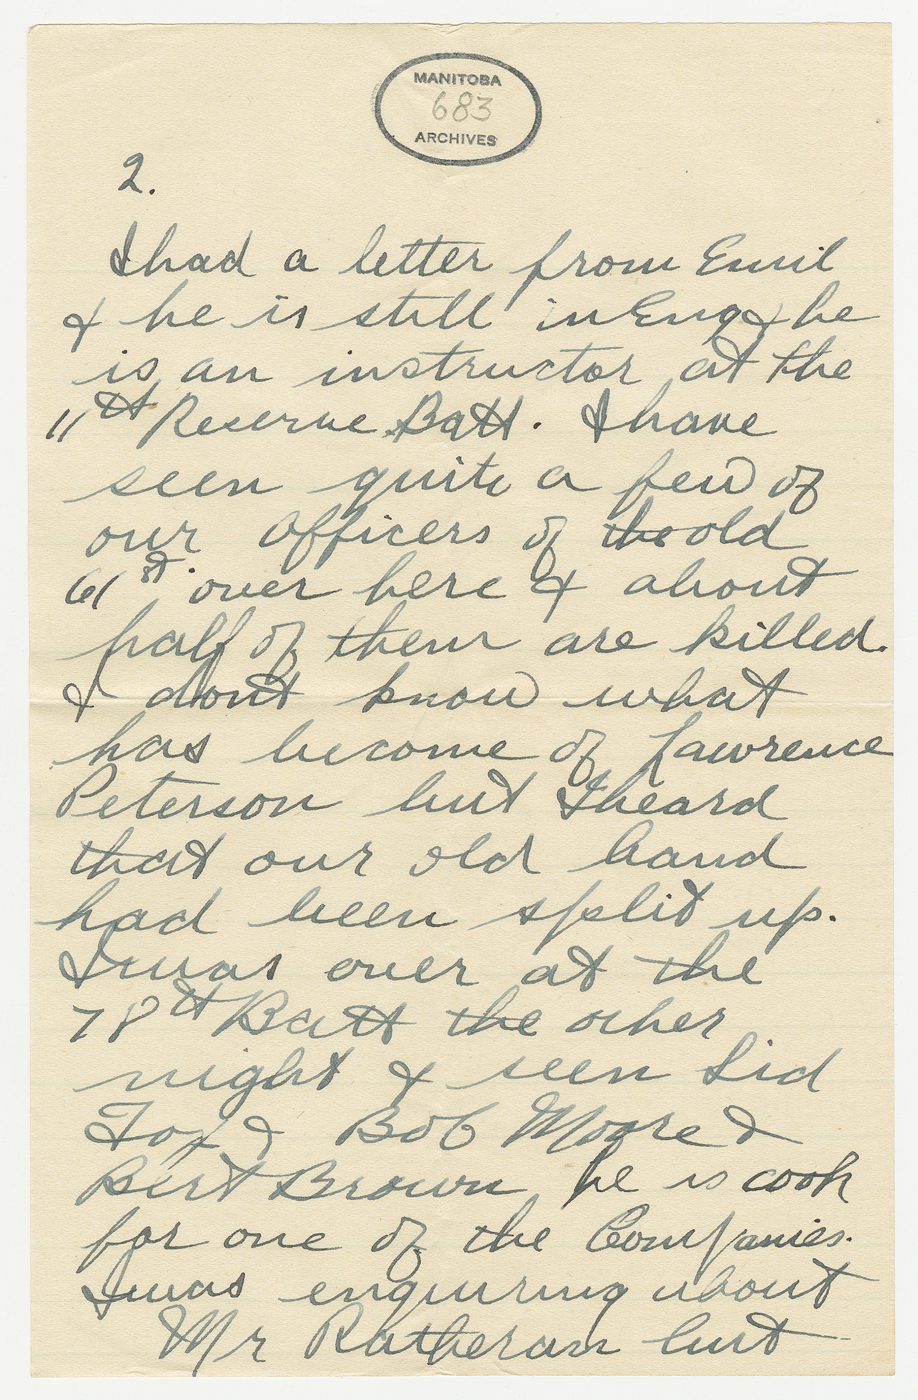 MANITOBA
683
ARCHIVES
2.
I had a letter from Emil
& he is still in Eng & he
is an instructor at the
11th Reserve Batt. I have
seen quite a few of
our officers of the old
61st over here & about
half of them are killed.
I dont know what
has become of Lawrence
Peterson but I heard
that our old band
had been split up.
I was over at the
78th Batt the other
night & seen Sid
Fox & Bob Moore &
Bert Brown he is cook
for one of the Companies.
I was enquiring about
Mr Ratheram but